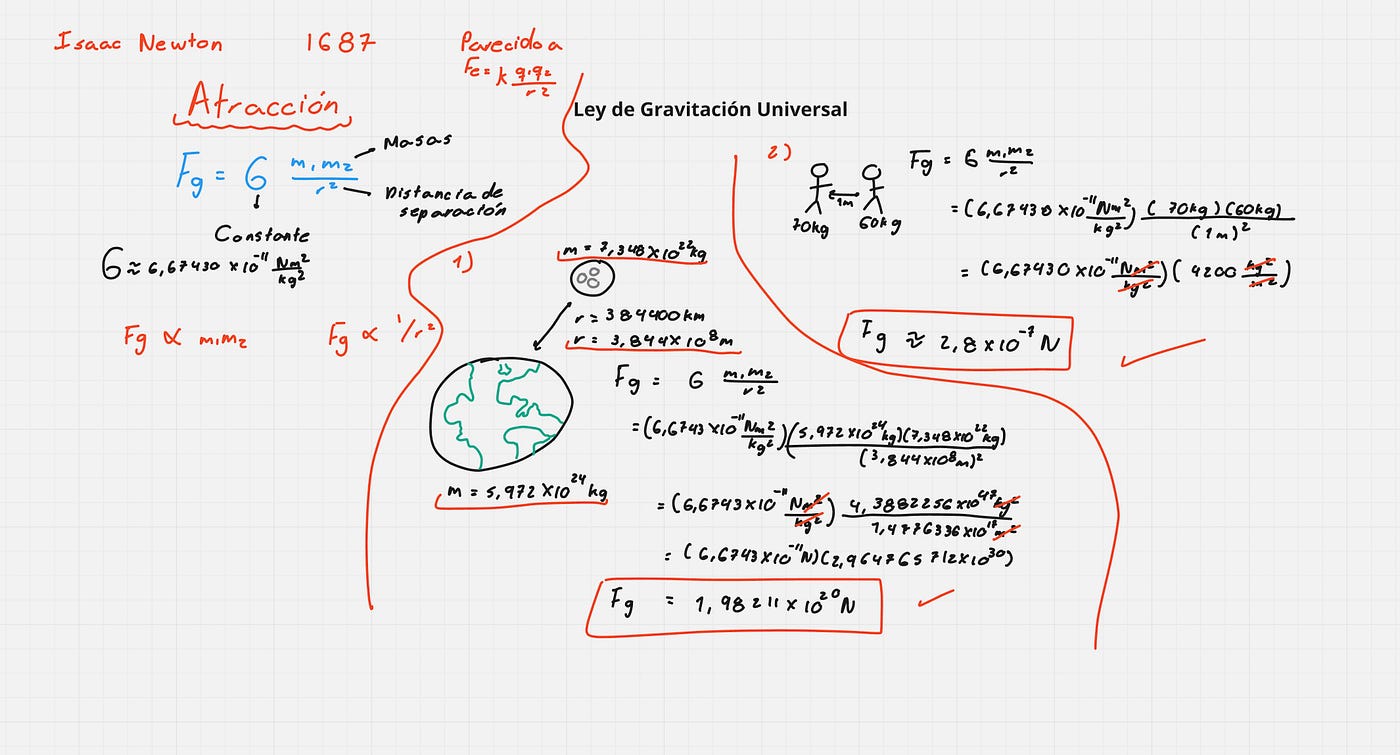 Isaac Newton 1687 Parecido a
Fe = k q1q2/r²
Atracción
Ley de Gravitación Universal
Fg = G m1m2/r²
Masas
Distancia de
separación
Constante
G ≈ 6,67430 ×10⁻¹¹ Nm²/kg²
Fg ∝ m1m2 Fg ∝ 1/r²
1)
m = 7,348×10²²kg
r = 384400km
r = 3,844×10⁸m
m = 5,972×10²⁴kg
Fg = G m1m2/r²
= (6,6743×10⁻¹¹ Nm²/kg²) (5,972×10²⁴kg)(7,348×10²²kg)/(3,844×10⁸m)²
= (6,6743×10⁻¹¹ Nm²/kg²) 4,3882256×10⁴⁷kg²/1,4776336×10¹⁷m²
= (6,6743×10⁻¹¹N)(2,964765712×10³⁰)
Fg = 1,98211×10²⁰N
2)
1m
70kg 60kg
Fg = G m1m2/r²
= (6,67430×10⁻¹¹ Nm²/kg²) (70kg)(60kg)/(1m)²
= (6,67430×10⁻¹¹ Nm²/kg²)(4200 kg²/m²)
Fg ≈ 2,8×10⁻⁷N